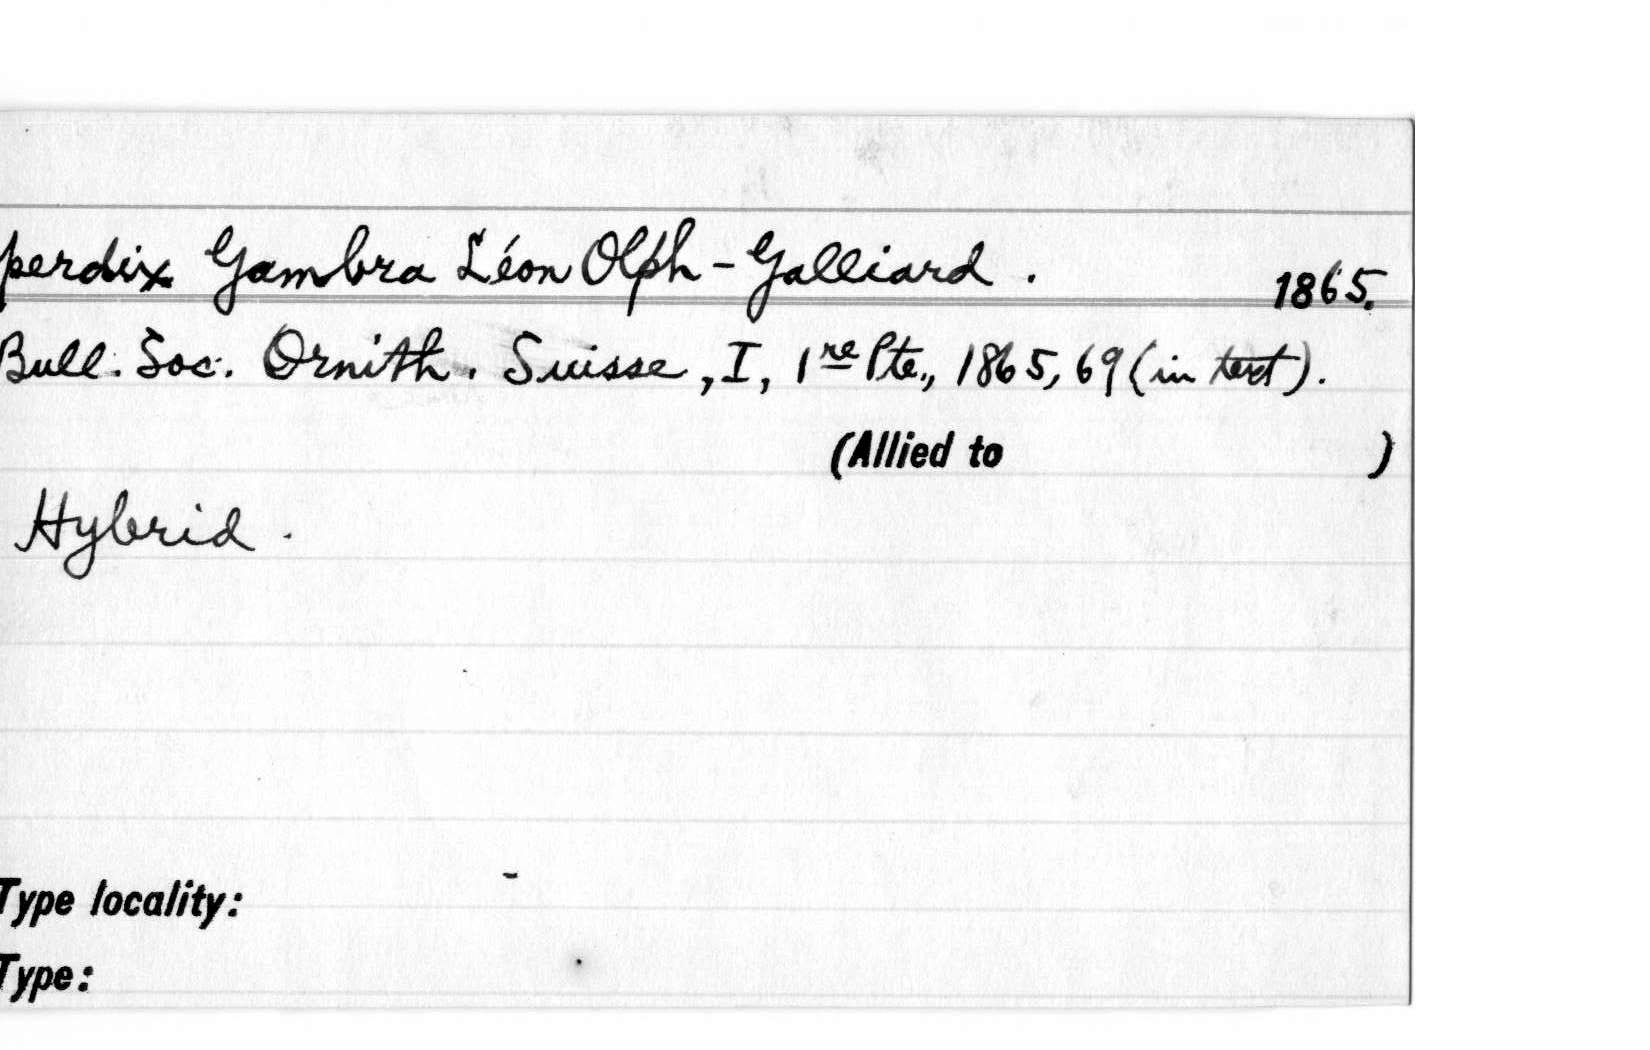 perdix Gambra Léon Olph-Galliard. 1865.
Bull. Soc. Ornith. Suisse, I, 1re Pte., 1865, 69 (in text).
(Allied to )
Hybrid.
Type locality: -
Type: